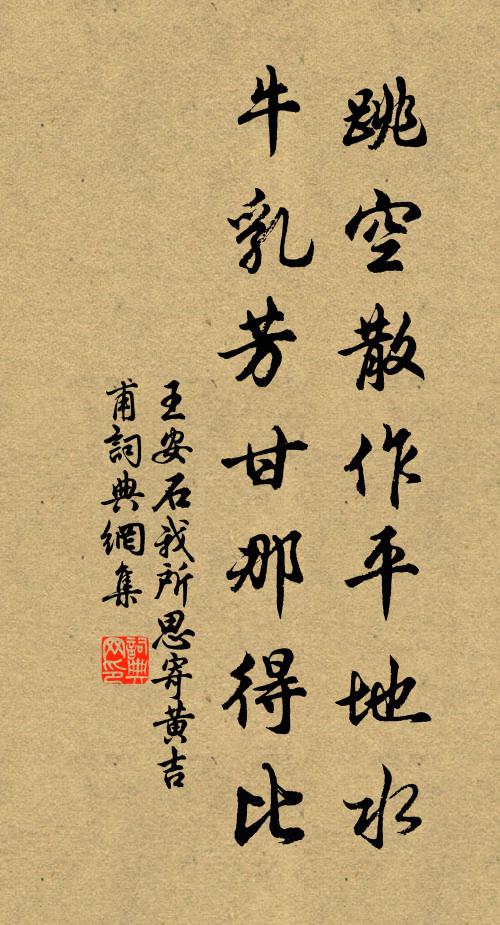 跳空散作平地水
牛乳芳甘那得比
王安石我所思寄黄吉
甫詞典網集
詞典网印